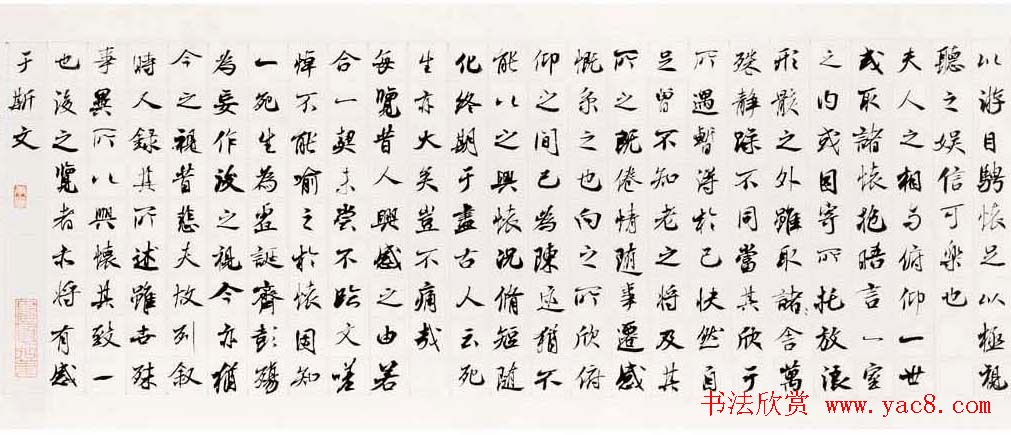 以游目騁懷足以極視
聽之娛信可樂也
夫人之相与俯仰一世
或取諸懷抱晤言一室
之内或因寄所托放浪
形骸之外雖取諸舍萬
殊靜躁不同當其欣于
所遇暫得於己快然自
足曾不知老之將及其
所之既倦情隨事遷感
慨系之也向之所欣俯
仰之間已為陳迹猶不
能以之興懷況脩短隨
化終期于盡古人云死
生亦大矣豈不痛哉
每覽昔人興感之由若
合一契未嘗不臨文嗟
悼不能喻之於懷固知
一死生為虛誕齊彭殤
為妄作後之視今亦猶
今之視昔悲夫故列叙
時人錄其所述雖世殊
事異所以興懷其致一
也後之覽者亦將有感
于斯文
书法欣赏 www.yac8.com